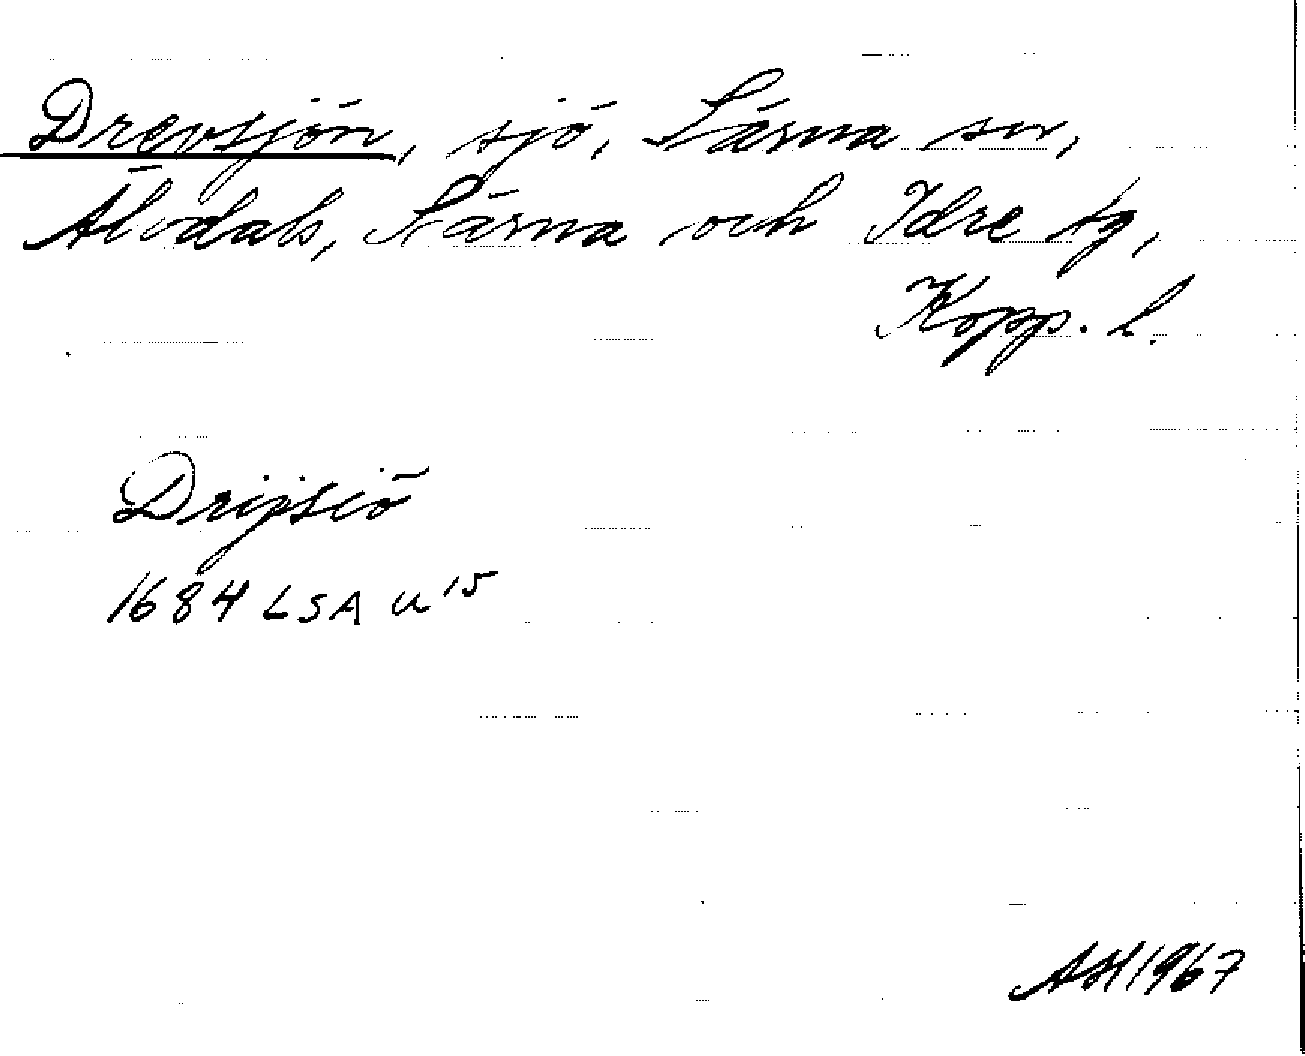 Drevsjön, sjö, Särna sn,
Älvdals, Särna och Idre tg,
Kopp. l.
Dripsiö
1684 LSA U 15
AH 1967